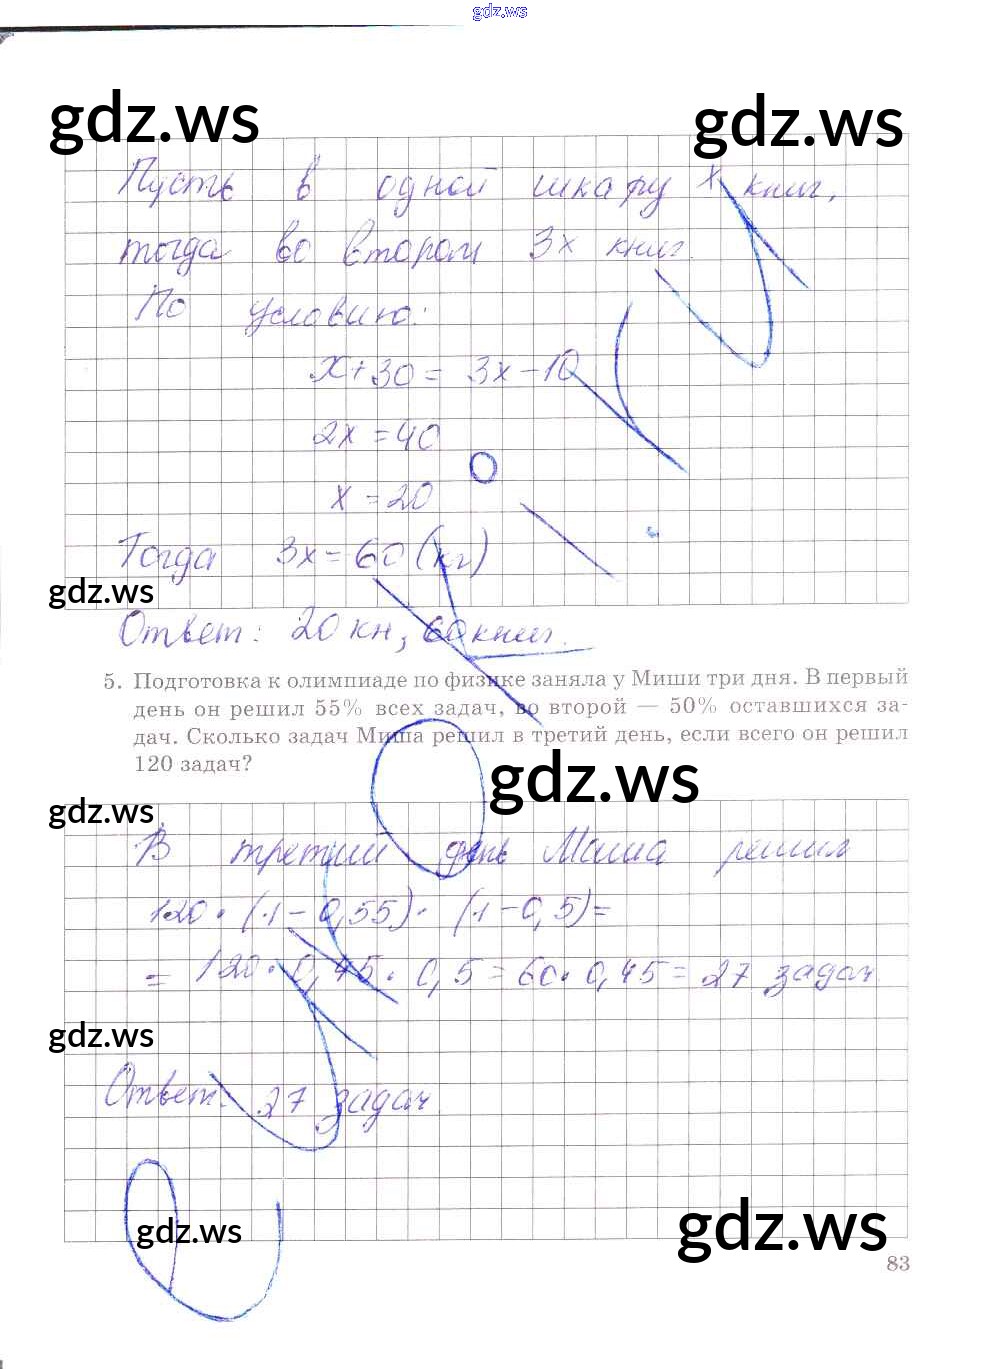 gdz.ws
gdz.ws
gdz.ws
Пусть в одной шкафу x книг,
тогда во втором 3x книг.
По условию:
x+30 = 3x-10
2x = 40
x = 20
Тогда 3x = 60 (кг)
gdz.ws
Ответ: 20 кн, 60 книг.
5. Подготовка к олимпиаде по физике заняла у Миши три дня. В первый
день он решил 55% всех задач, во второй — 50% оставшихся за-
дач. Сколько задач Миша решил в третий день, если всего он решил
120 задач?
gdz.ws
gdz.ws
В третий день Маша решил
120·(1-0,55)·(1-0,5)=
= 120·0,45·0,5=60·0,45=27 задач
gdz.ws
Ответ: 27 задач.
gdz.ws
gdz.ws
83